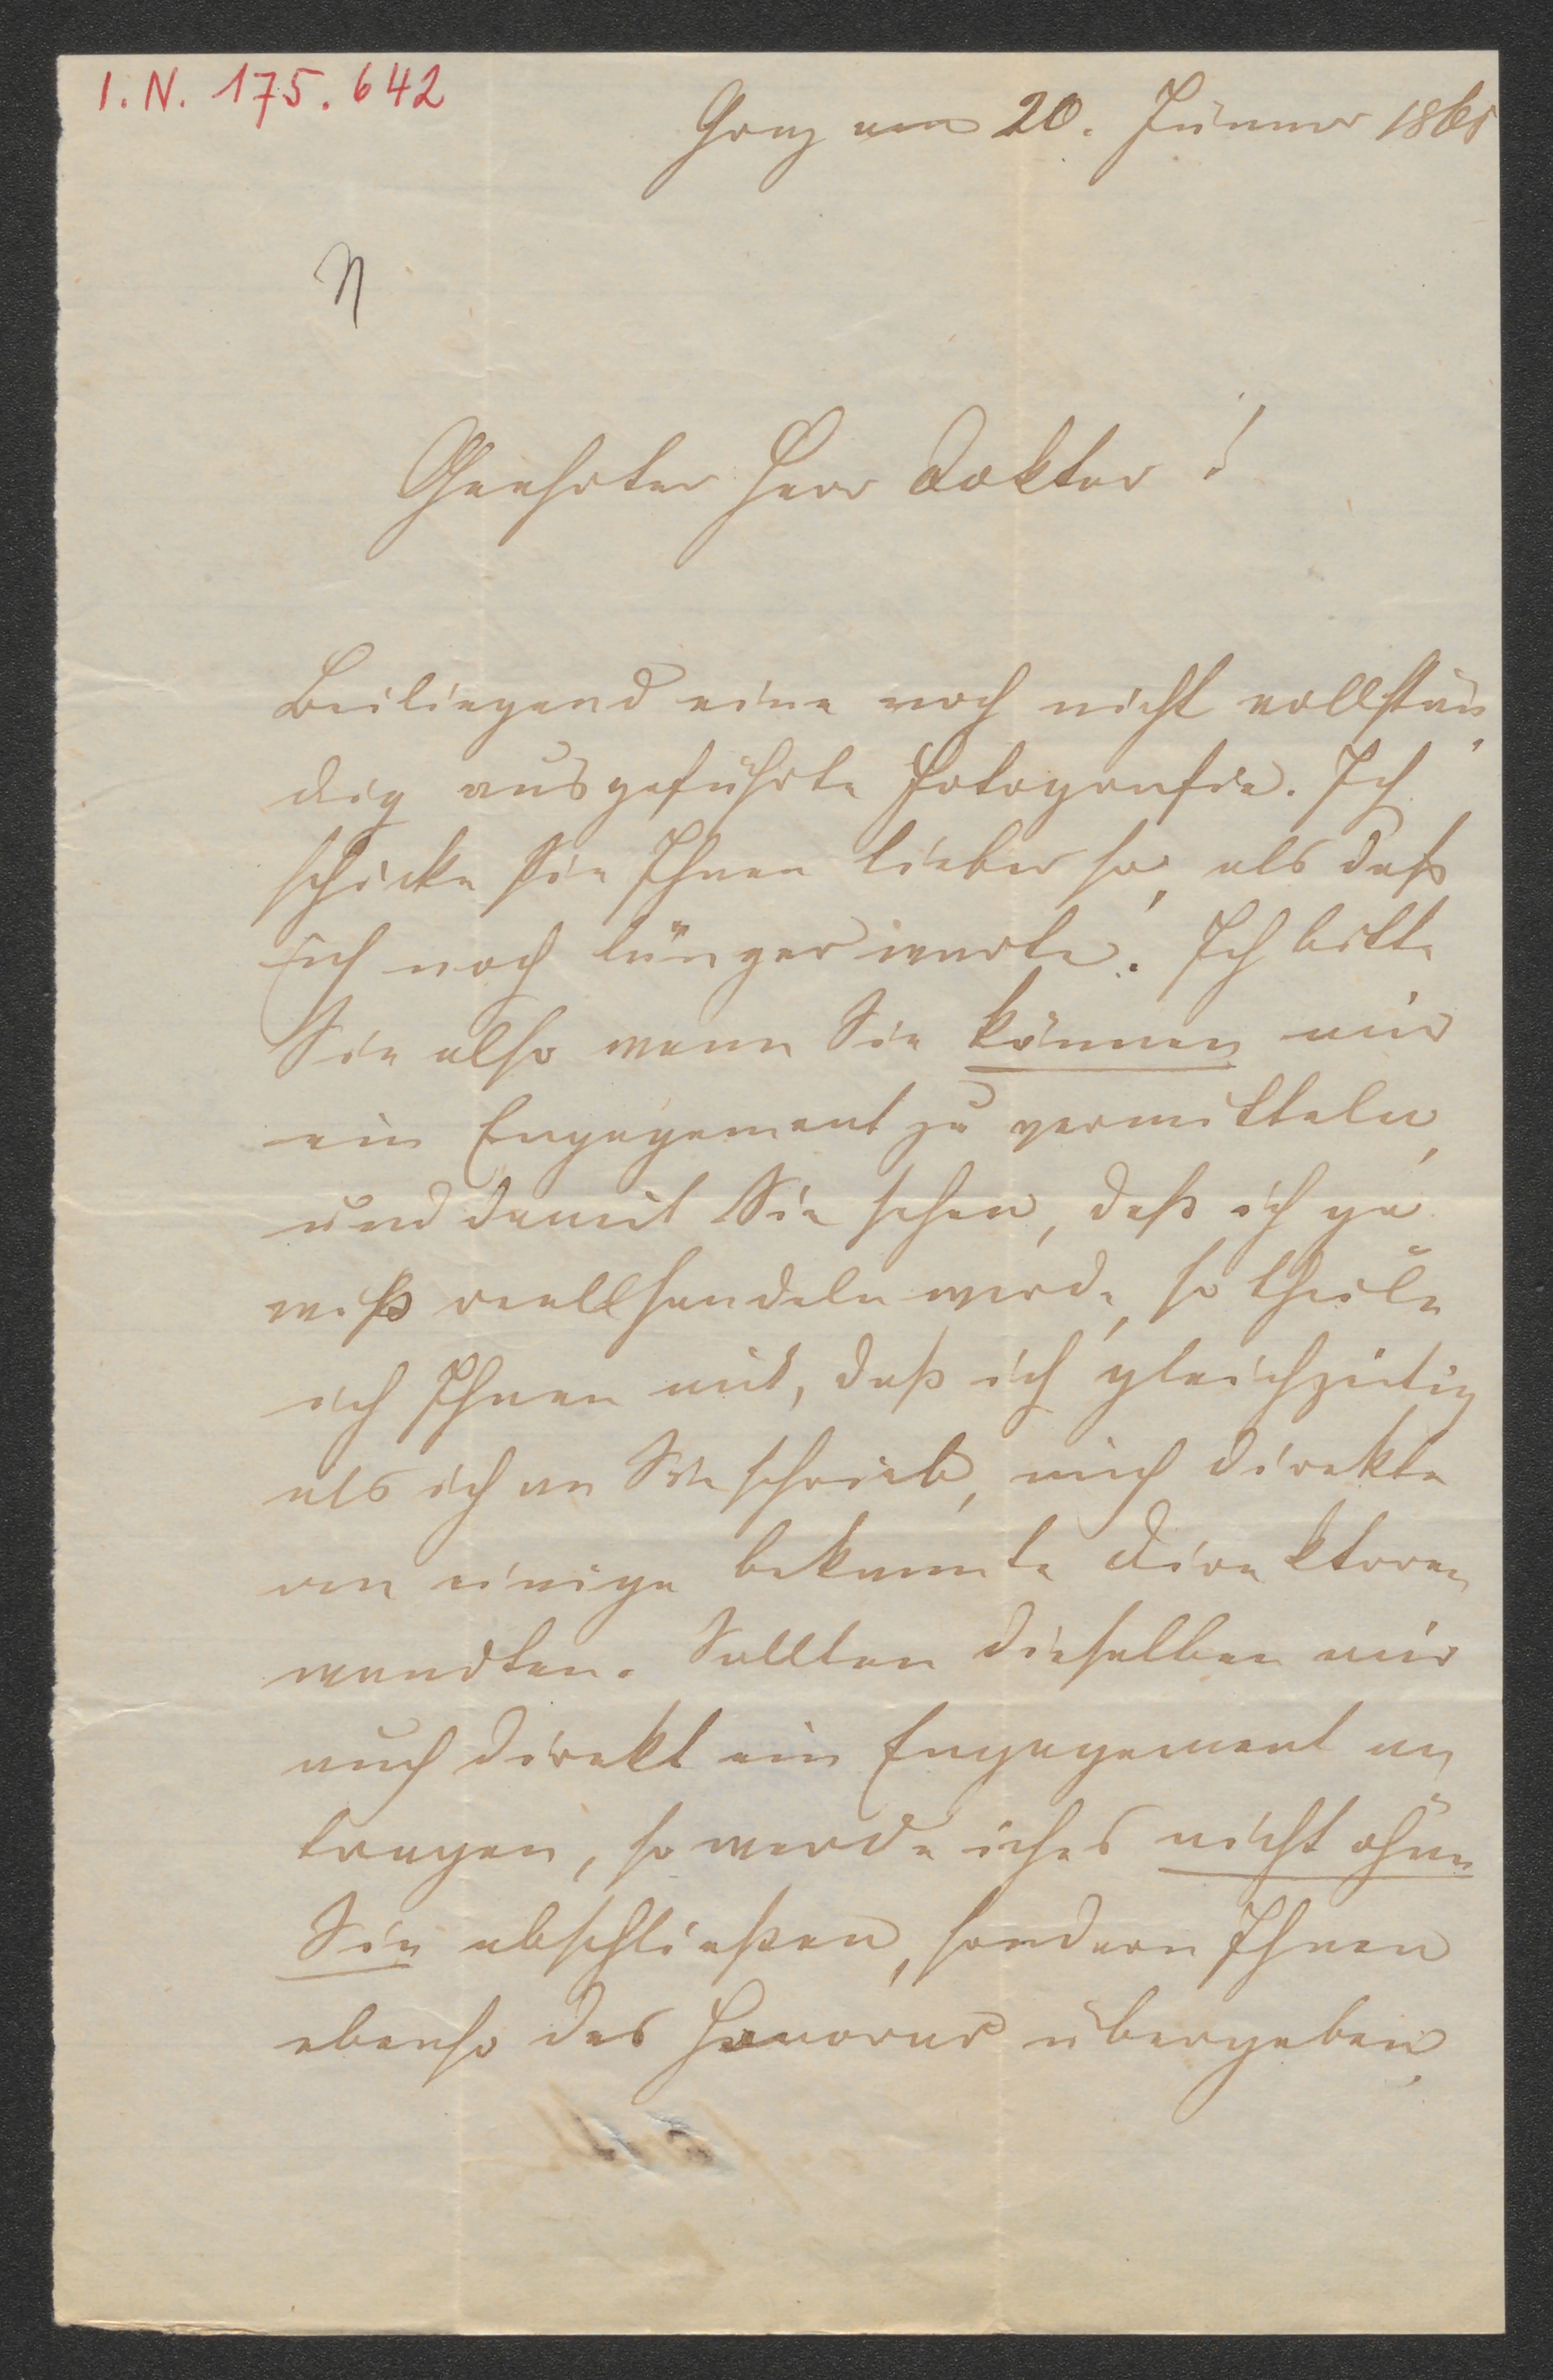 I. N. 175.642
Graz am 20. Jänner 1865
N
Geehrter Herr Doktor!
Beiliegend eine noch nicht vollstän
dig ausgeführte Fotografie. Ich
schicke sie Ihnen lieber so, als daß
ich noch länger warte. Ich bitte
Sie also wenn Sie können mir
ein Engagement zu vermitteln,
und damit Sie sehen, daß ich ge
wiß reell handeln werde, so theile
ich Ihnen mit, daß ich gleichzeitig
als ich an Sie schrieb, mich direkte
an einige bekannte Direktoren
wandten. Sollten dieselben mir
auch direkt ein Engagement an
tragen, so werde ich es nicht ohne
Sie abschließen, sondern Ihnen
ebenso das Honorar übergeben,